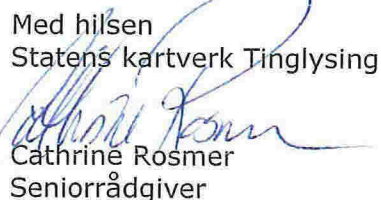 Med hilsen
Statens kartverk Tinglysing
Cathrine Rosmer
Cathrine Rosmer
Seniorrådgiver